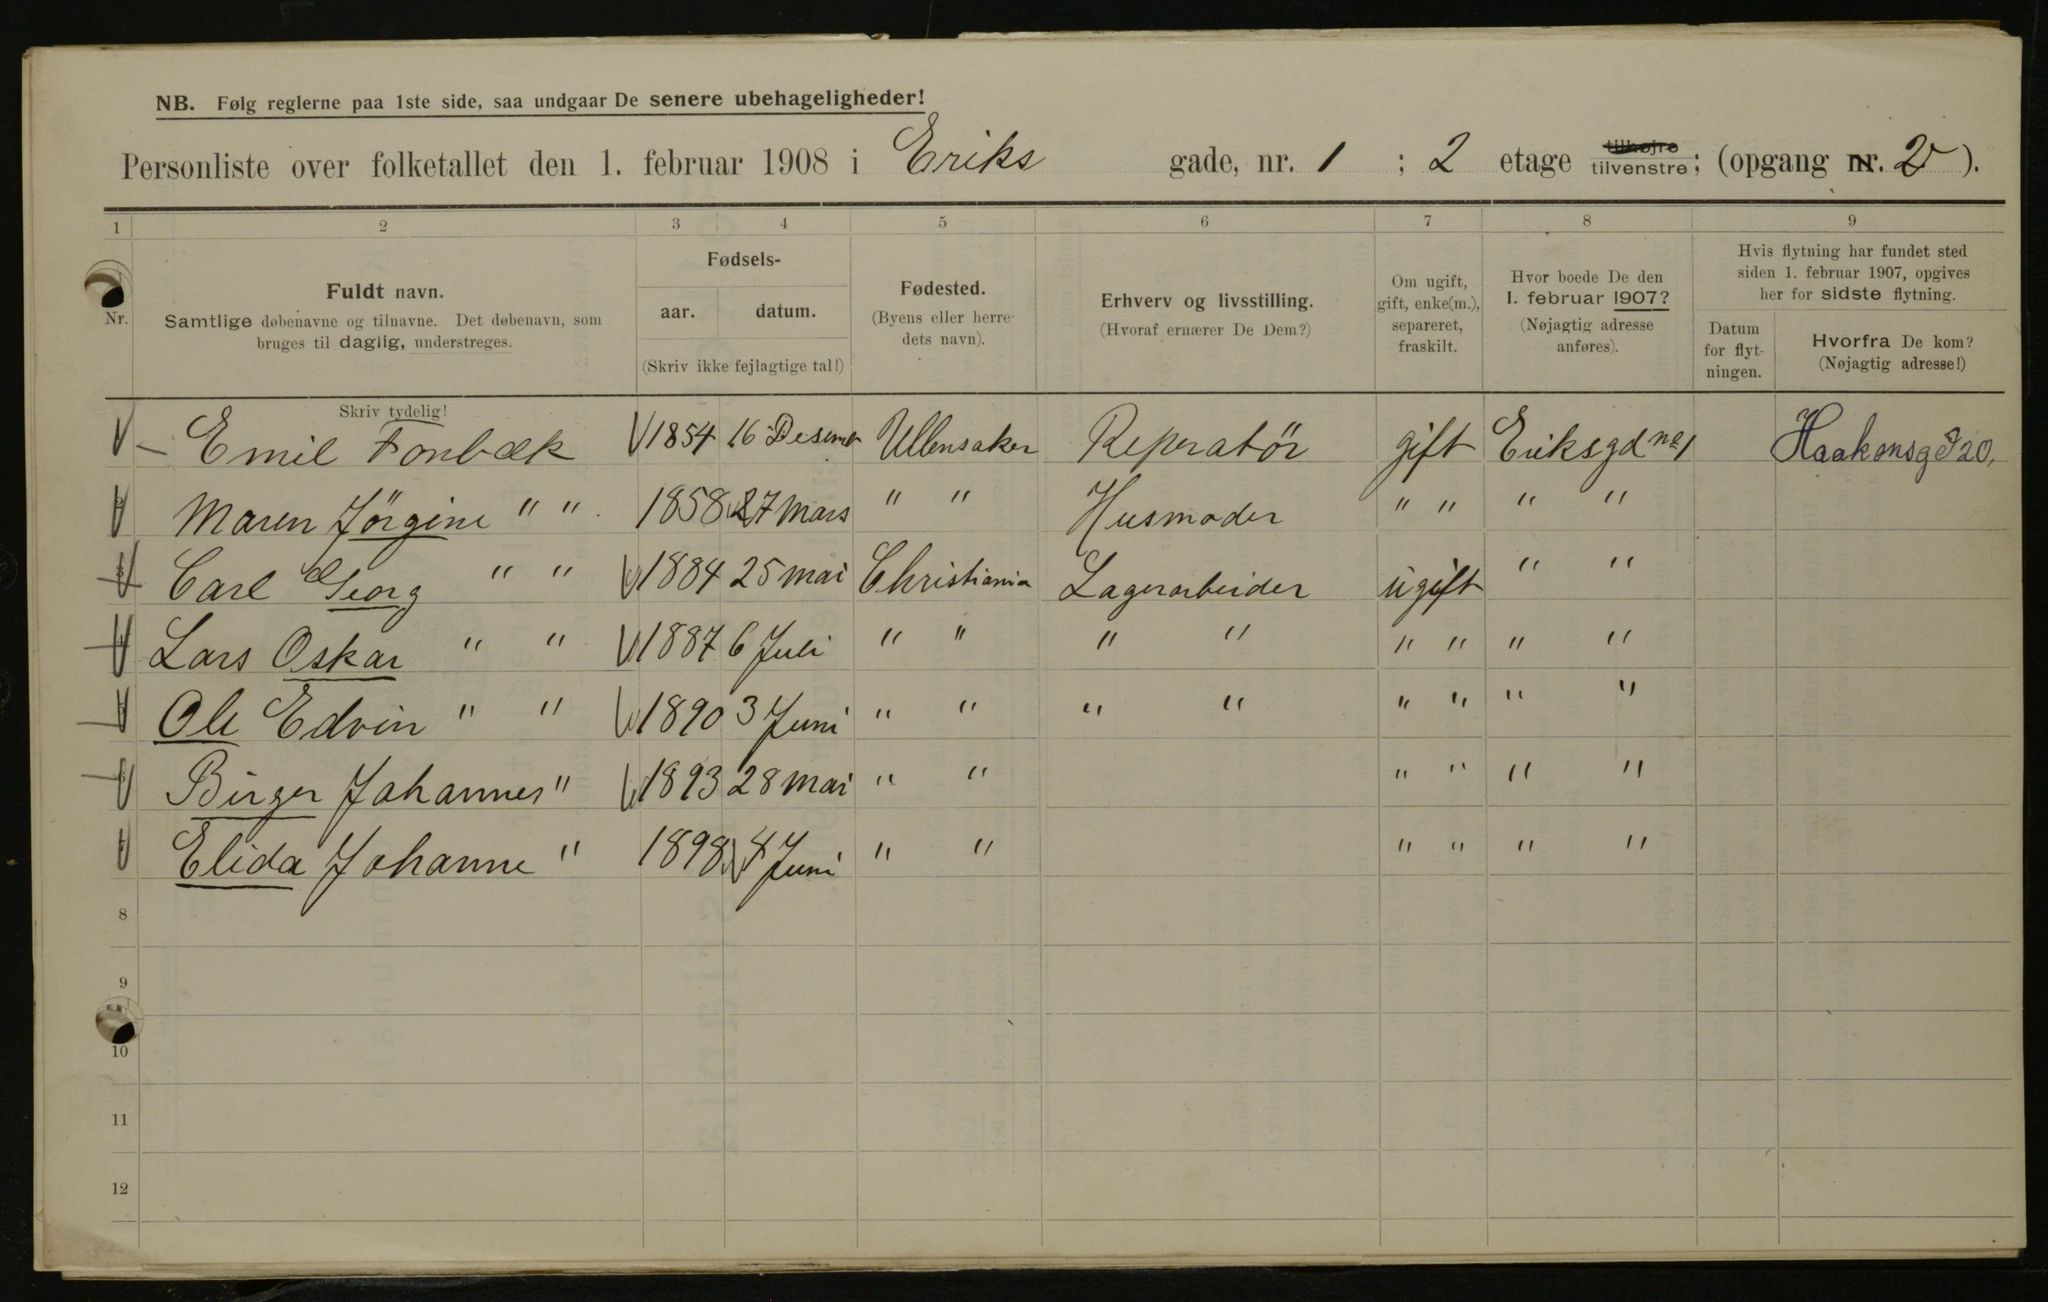 NB. Følg reglerne paa 1ste side, saa undgaar De senere ubehageligheder!
Personliste over folketallet den 1. februar 1908 i Eriks gade, nr. 1 ; 2 etage tilhøjre tilvenstre; (opgang nr. 2).
1 2 3 4 5 6 7 8 9
Nr.
Fuldt navn.
Samtlige døbenavne og tilnavne. Det døbenavn, som
bruges til daglig, understreges.
Skriv tydelig!
Fødsels-
aar. datum.
(Skriv ikke fejlagtige tal!)
Fødested.
(Byens eller herre-
dets navn).
Erhverv og livsstilling.
(Hvoraf ernærer De Dem?)
Om ugift,
gift, enke(m.),
separeret,
fraskilt.
Hvor boede De den
1. februar 1907?
(Nøjagtig adresse
anføres).
Hvis flytning har fundet sted
siden 1. februar 1907, opgives
her for sidste flytning.
Datum
for flyt-
ningen.
Hvorfra De kom?
(Nøjagtig adresse!)
Emil Fonbæk 1854 16 Desember Ullensaker Reperatör gift Eriksgd no 1 Haakonsgd 20,
Maren Jörgine " " 1858 27 Mars " " Husmoder " " " "
Carl Georg " " 1884 25 Mai Christiania Lagerarbeider ugift " "
Lars Oskar " " 1887 6 Juli " " " " " " " "
Ole Edvin " " 1890 3 Juni " " " " " " " "
Birger Johannes " 1893 28 Mai " " " " " "
Elida Johanne " 1898 4 Juni " " " " " "
8
9
10
11
12